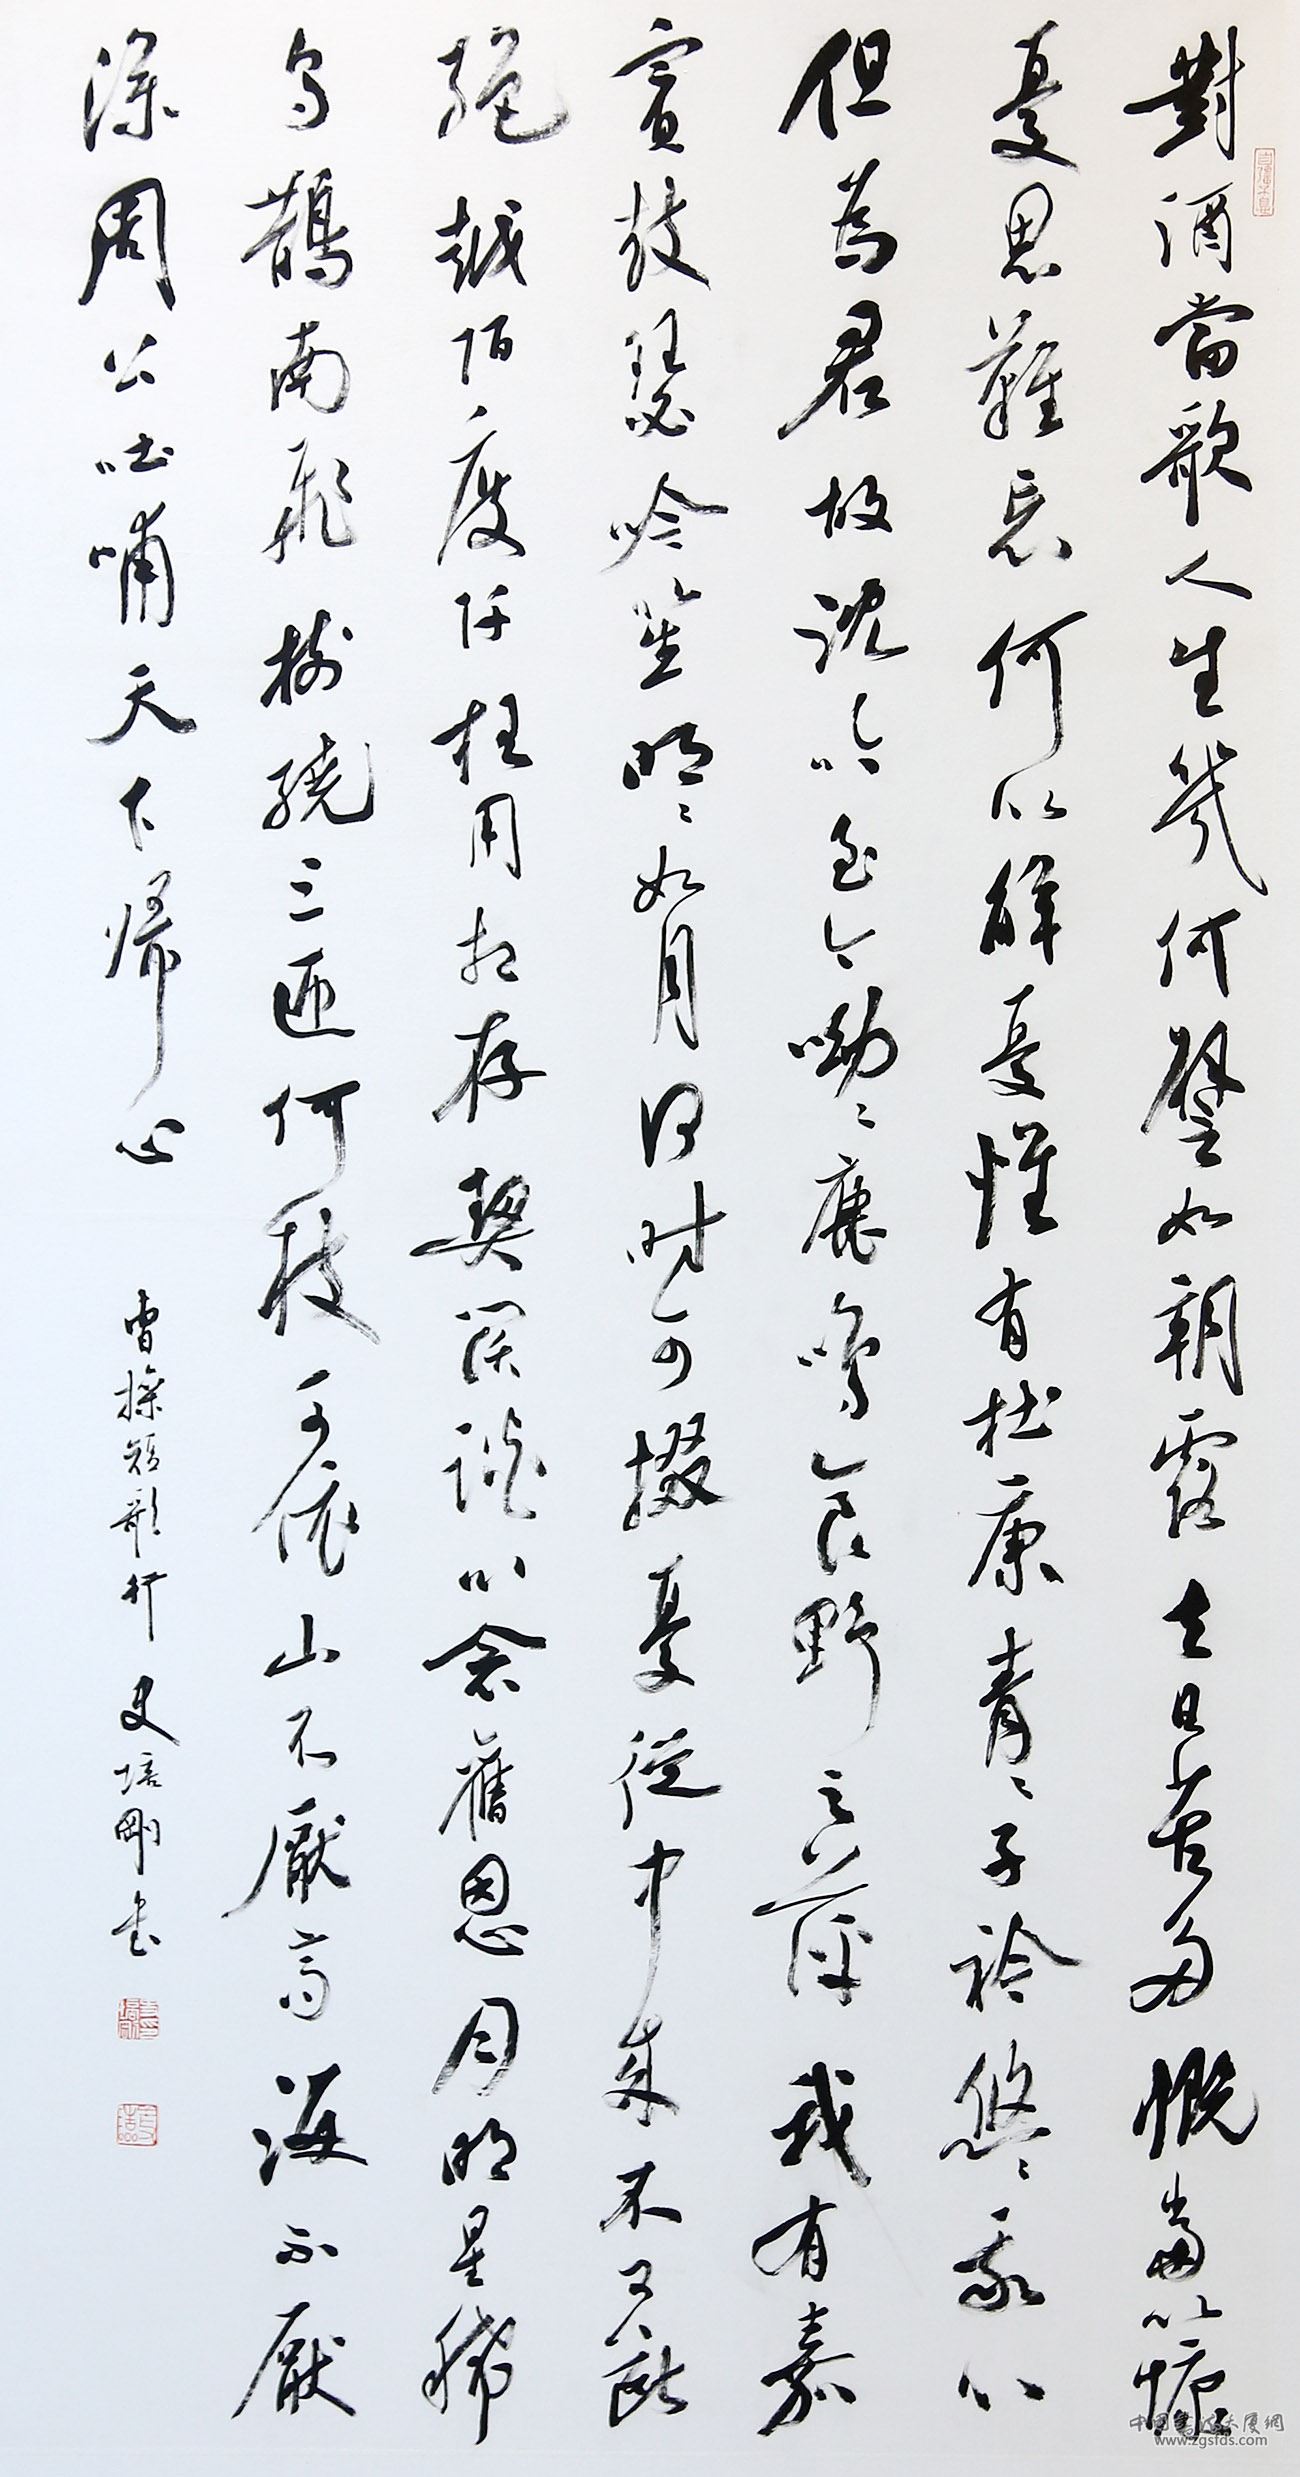 對酒當歌人生幾何譬如朝露去日苦多慨當以慷
憂思難忘何以解憂惟有杜康青〻子衿悠〻我心
但為君故沈吟至今呦〻鹿鳴食野之苹我有嘉
賓鼓瑟吟笙明〻如月何時可掇憂從中來不可斷
絕越陌度阡枉用相存契闊談心念舊恩月明星稀
烏鵲南飛樹繞三匝何枝可依山不厭高海不厭
深周公吐哺天下歸心 曹操短歌行 史培剛書
中国书法大厦網
www.zgsfds.com